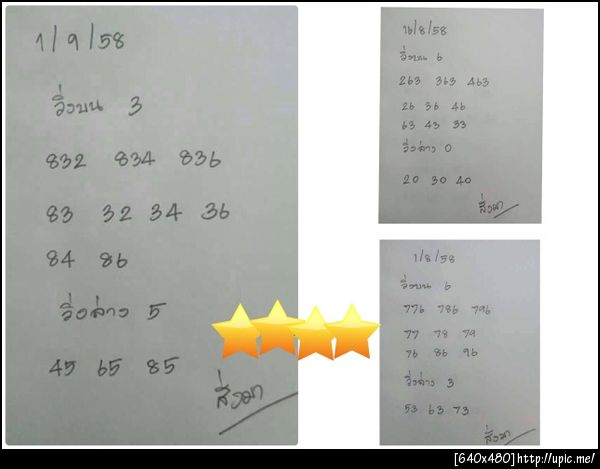 1/9/58
วิ่งบน 3
832 834 836
83 32 34 36
84 86
วิ่งล่าง 5
45 65 85
16/8/58
วิ่งบน 6
263 363 463
26 36 46
63 43 33
วิ่งล่าง 0
20 30 40
1/8/58
วิ่งบน 6
776 786 796
77 78 79
76 86 96
วิ่งล่าง 3
53 63 73
[640x480]http://upic.me/